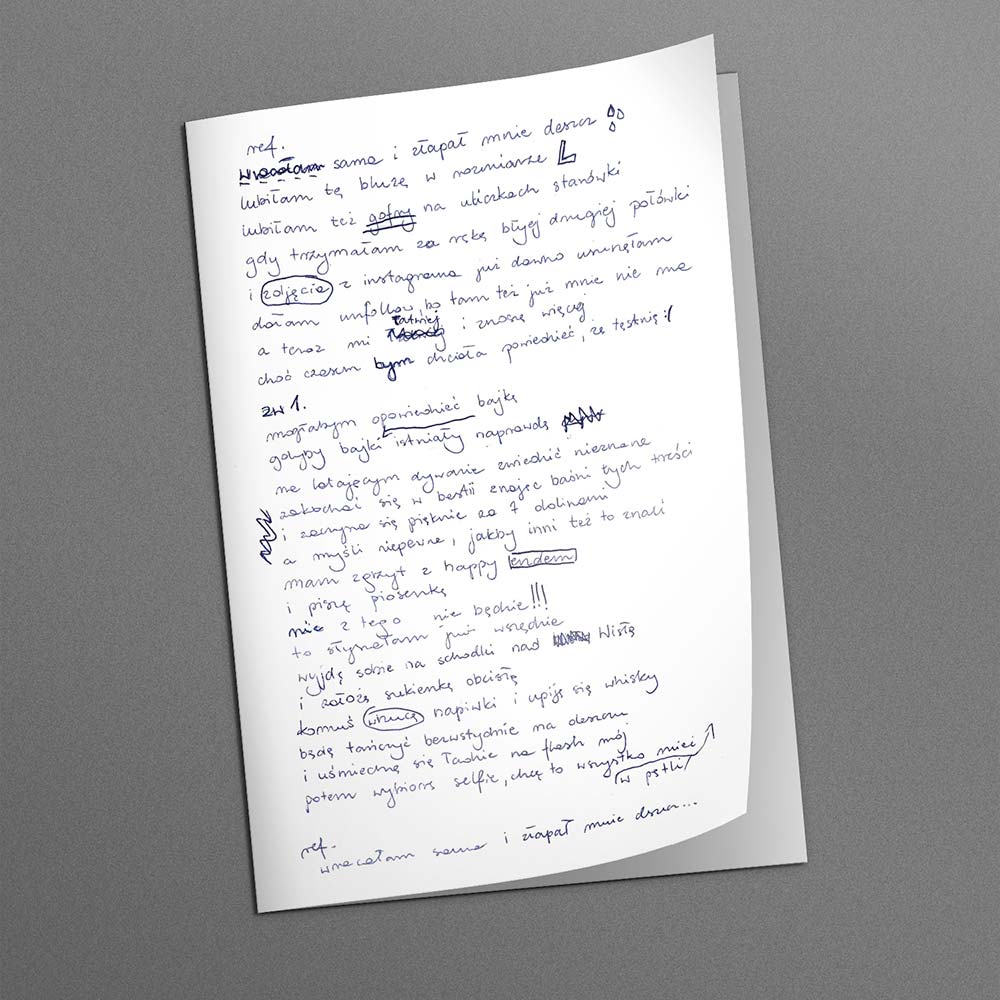 ref.
wracałam sama i złapał mnie deszcz
lubiłam tę bluzę w rozmiarze L
lubiłam też gofry na uliczkach starówki
gdy trzymałam za rękę błyej drugiej połówki
i zdjęcia z instagrama już dawno usunęłam
dałam unfollow, bo tam też już mnie nie ma
a teraz mi łatwiej i znoszę więcej
choć czasem bym chciała powiedzieć, że tęsknię :(
zw 1.
mogłabym opowiedzieć bajkę
gdyby bajki istniały naprawdę
na latającym dywanie zwiedzić nieznane
zakochać się w bestii znając baśni tych treści
i zaczyna się pięknie za 7 dolinami
a myśli niepewne, jakby inni też to znali
mam zgrzyt z happy endem
i piszę piosenkę
nic z tego nie będzie!!!
to słyszałam już wszędzie
wyjdę sobie na schodki nad Wisłę
i założę sukienkę obcisłą
komuś wrzucę napiwki i upiję się whisky
będę tańczyć bezwstydnie na deszczu
i uśmiechnę się ładnie na flash mój
potem wybiorę selfie, chcę to wszystko mieć
w pętli
ref.
wracałam sama i złapał mnie deszcz...